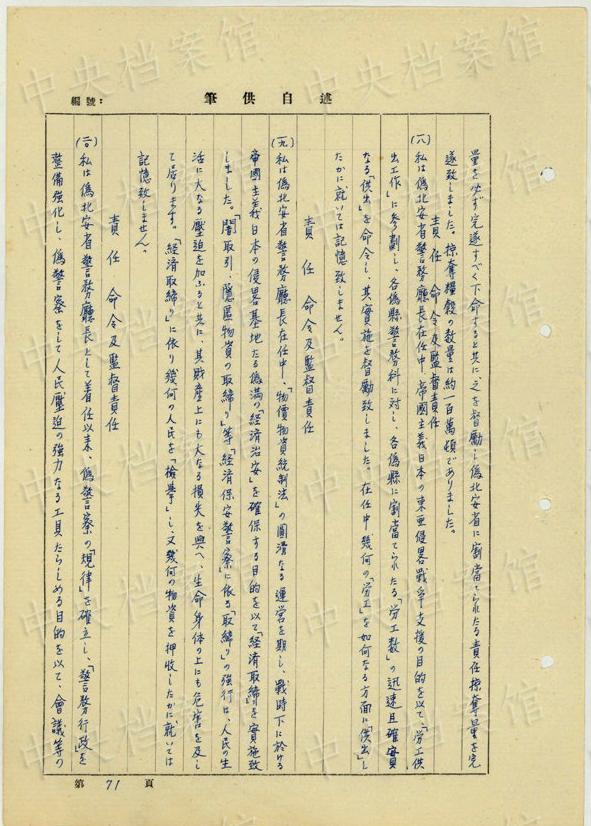 中央档案馆
編號：
筆供自述
量を必ず完遂すべく下命すると共に、之を督励し偽北安省に割當てられたる責任掠奪量を完
遂致しました。掠奪糧穀の数量は約一百萬頓でありました。
責任 命令及監督責任
(一八) 私は偽北安省警務廳長在任中、帝國主義日本の東亜侵畧戰爭支援の目的を以て、「労工供
出工作」に参劃し、各偽縣警務科に対し、各偽縣に割當てられたる「労工数」の迅速且確實
なる「供出」を命令し、其實施を督勵致しました。在任中幾何の「労工」を如何なる方面に「供出」し
たかに就いては記憶致しません。
責任 命令及監督責任
(一九) 私は偽北安省警務廳長在任中、「物價物資統制法」の圓滑なる運営を期し、戰時下に於ける
帝國主義日本の侵畧基地たる偽満の「経済治安」を確保する目的を以て「経済取締り」を實施致
しました。「闇取引、隠匿物資の取締り」等「経済保安警察」に依る「取締り」の強行は、人民の生
活に大なる壓迫を加ふると共に、其財産上にも大なる損失を與へ、生命身体の上にも危害を及し
て居ります。「経済取締り」に依り幾何の人民を「檢擧」し、又幾何の物資を押収したかに就いては
記憶致しません。
責任 命令及監督責任
(二〇) 私は偽北安省警務廳長として着任以来、偽警察の「規律」を確立し、「警務行政」を
整備強化し、偽警察をして人民壓迫の強力なる工具たらしめる目的を以て、會議等の
第 71 頁